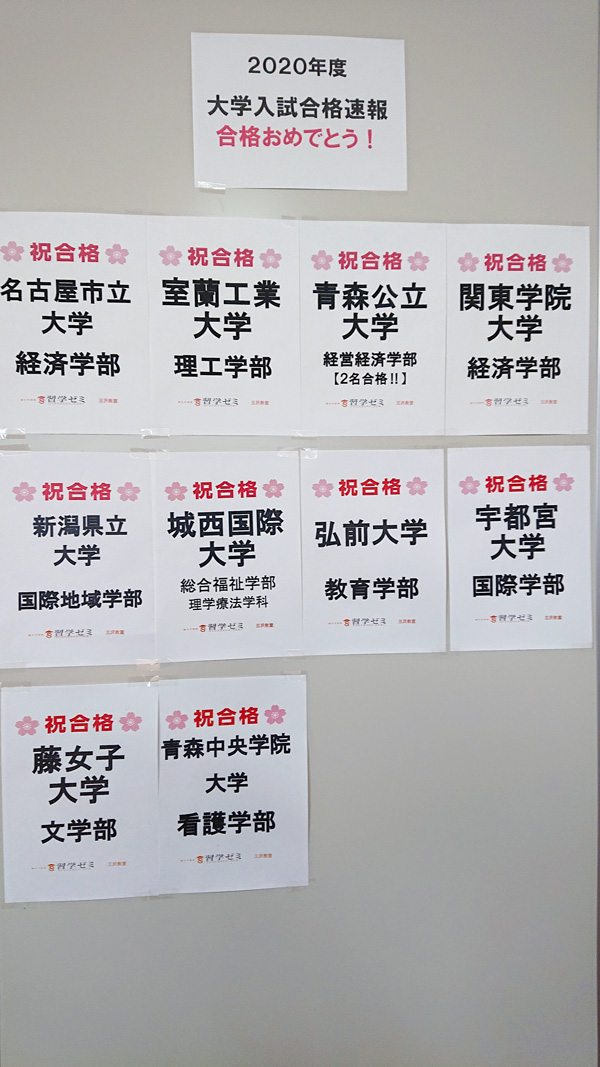 2020年度
大学入試合格速報
合格おめでとう！
祝合格
名古屋市立
大学
経済学部
習学ゼミ
祝合格
室蘭工業
大学
理工学部
習学ゼミ
祝合格
青森公立
大学
経営経済学部
【2名合格!!】
習学ゼミ
祝合格
関東学院
大学
経済学部
習学ゼミ
祝合格
新潟県立
大学
国際地域学部
習学ゼミ
祝合格
城西国際
大学
総合福祉学部
理学療法学科
習学ゼミ
祝合格
弘前大学
教育学部
習学ゼミ
祝合格
宇都宮
大学
国際学部
習学ゼミ
祝合格
藤女子
大学
文学部
習学ゼミ
祝合格
青森中央学院
大学
看護学部
習学ゼミ